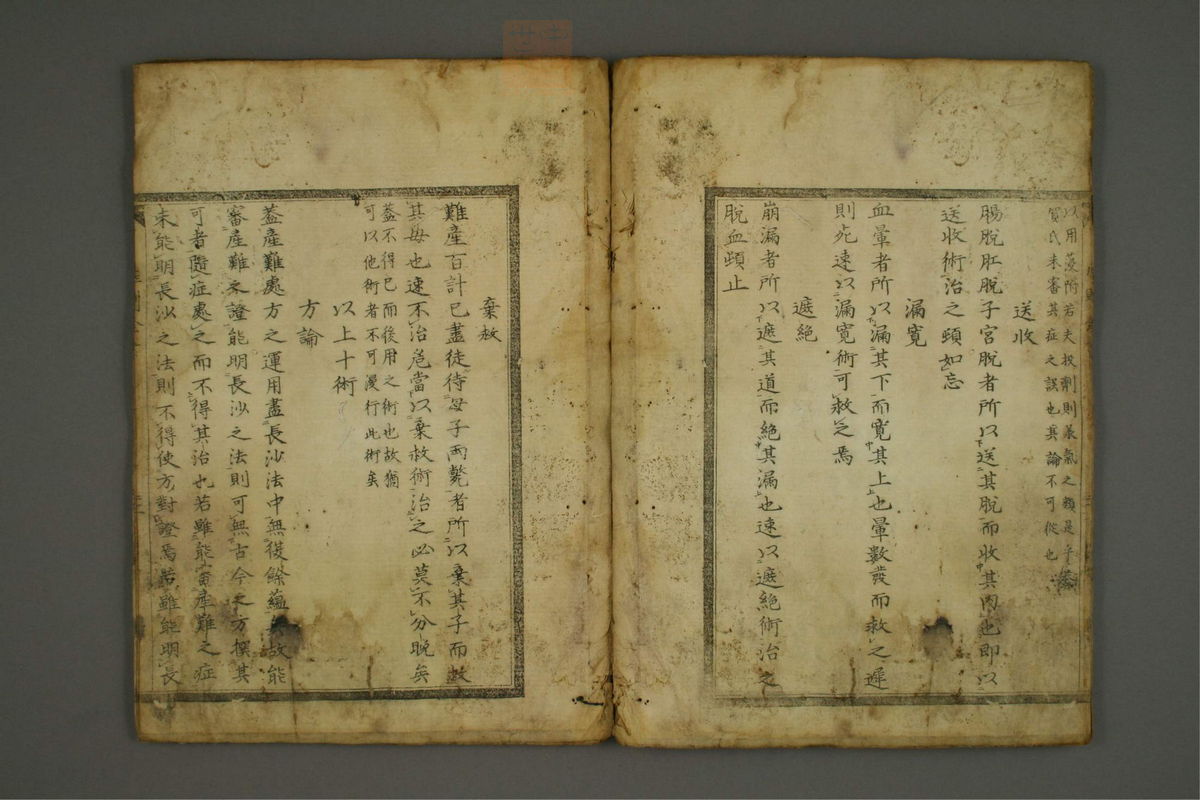 以用菱附若夫投劑則蒸氣之類是乎蓋
賀氏未審其症之誤也其論不可從也
送收
腸脫肛脫子宮脫者所以送其脫而收其內也即以
送收術治之頤如忘
漏寬
血暈者所以漏其下而寬其上也暈數發而救之遲
則死速以漏寬術可救之焉
遮絕
崩漏者所以遮其道而絕其漏也速以遮絕術治之
脫血頤止
棄救
難產百計已盡徒待母子兩斃者所以棄其子而救
其母也速不治危當以棄救術治之必莫不分晚矣
蓋不得已而後用之術也故猶
可以他術者不可漫行此術矣
以上十術
方論
蓋產難處方之運用盡長沙法中無復餘蘊故能
審產難之證能明長沙之法則可無古今之方撰其
可者隨症處之而不得其治也若雖能審產難之症
未能明長沙之法則不得使方對證焉若雖能明長